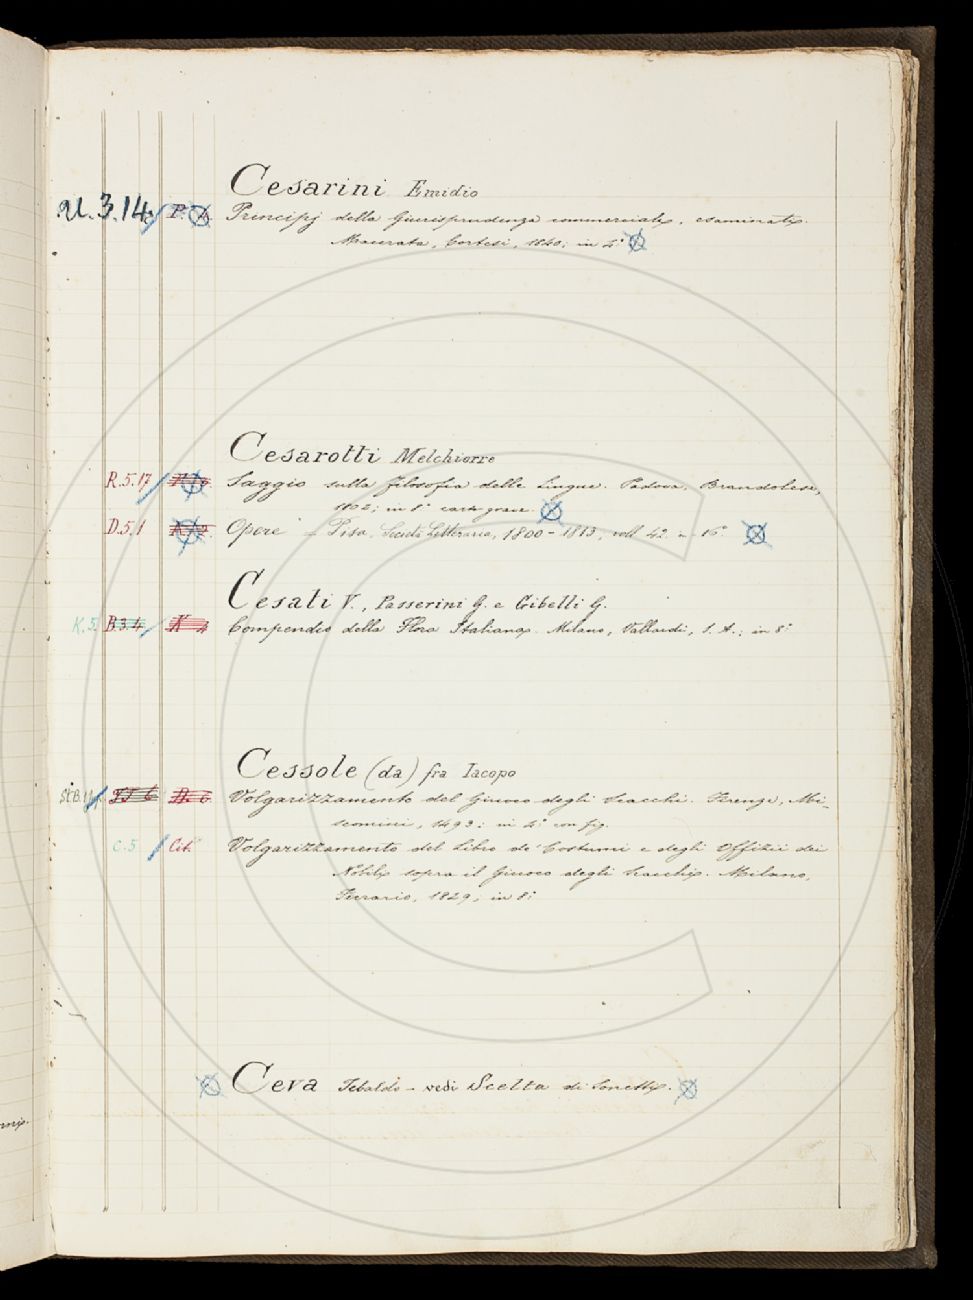 Cesarini Emidio
U.3.14. Principj della Giurisprudenza commerciale, esaminati.
Macerata, Cortesi, 1840; in 4°
Cesarotti Melchiorre
R.5.17 Saggio sulla filosofia delle Lingue. Padova, Brandolese,
1802; in 8° carta grave.
D.5.1 Opere – Pisa, Società Letteraria, 1800-1813, voll 42. in 16°
Cesati V., Passerini G. e Gibelli G.
K.5. B.3.4 K 4 Compendio della Flora Italiana. Milano, Vallardi, S. A.; in 8°
Cessole (da) fra Iacopo
Volgarizzamento del Giuoco degli Scacchi. Firenze, Mi-
scomini, 1493; in 4° con fig.
C.5 Cit. Volgarizzamento del Libro de' Costumi e degli Offizii dei
Nobili sopra il Giuoco degli Scacchi. Milano,
Ferrario, 1829; in 8°
Ceva Tebaldo – vedi Scelta di Sonetti.